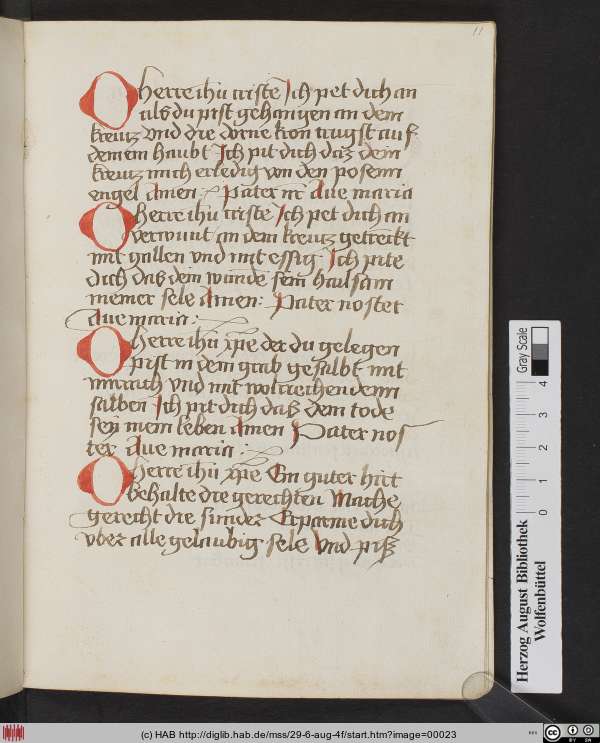 11
O herre ihū criste Ich pet dich an
als du pist gehangen an dem
kreutz vnd die dorne kron trugst auf
deinem haubt Ich pit dich daz dein
kreutz mich erledig von den posenn
engel Amen : Pater nr̄ Aue maria
O herre ihū criste Ich pet dich an
verwunt an dem kreutz getrenckt
mit gallen vnd mit essig Ich pite
dich daß dein wunde sein hailsam
meiner sele Amen : Pater noster
Aue maria :
O herre ihū xp̄e der du gelegen
pist in dem grab gesalbt mit
mirach vnd mit wolriechendenn
salben Ich pit dich daß dem tode
sey mein leben Amen Pater nos
ter Aue maria :
O herre ihū xp̄e Ein guter hirt
behalte die gerechten Mache
gerecht die sunder Erparme dich
vber alle gelaubig sele Vnd piß
Gray Scale
0 1 2 3 4
Herzog August Bibliothek
Wolfenbüttel
(c) HAB http://diglib.hab.de/mss/29-6-aug-4f/start.htm?image=00023
cc BY SA